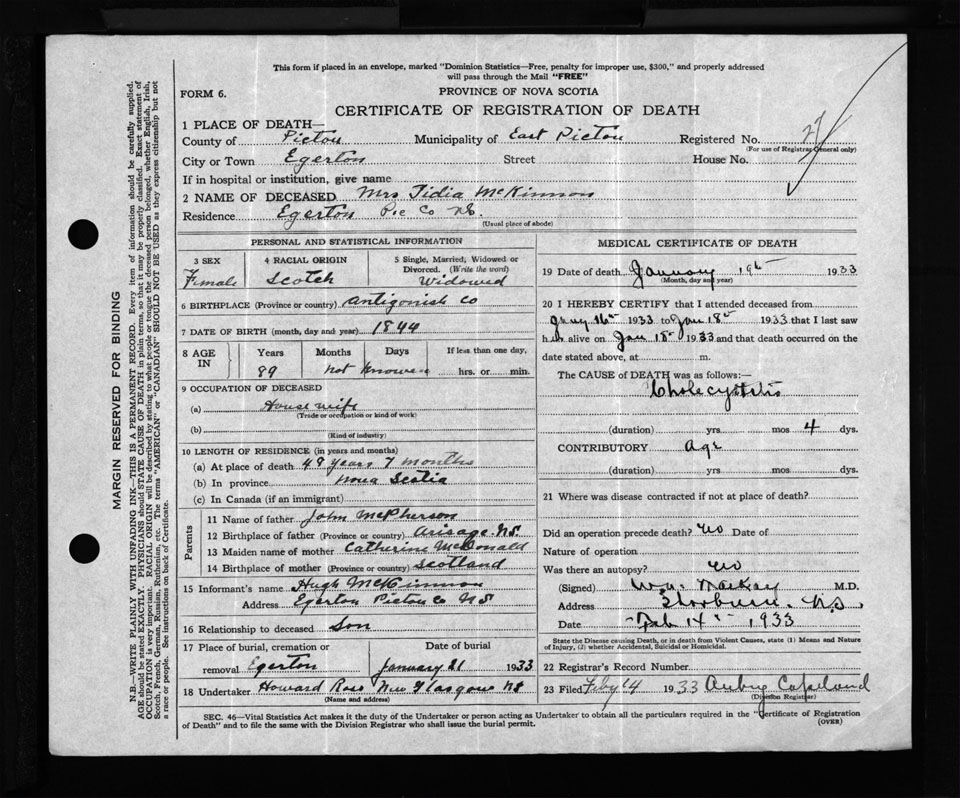 This form if placed in an envelope, marked "Dominion Statistics—Free, penalty for improper use, $300," and properly addressed
will pass through the Mail "FREE"
FORM 6.
PROVINCE OF NOVA SCOTIA
CERTIFICATE OF REGISTRATION OF DEATH
1 PLACE OF DEATH—
County of Pictou Municipality of East Pictou Registered No. 27
(For use of Registrar General only)
City or Town Egerton Street House No.
If in hospital or institution, give name
2 NAME OF DECEASED Mrs Tidia McKinnon
Residence Egerton Pic Co NS.
(Usual place of abode)
PERSONAL AND STATISTICAL INFORMATION
3 SEX 4 RACIAL ORIGIN 5 Single, Married, Widowed or
Divorced. (Write the word)
Female Scotch Widowed
6 BIRTHPLACE (Province or country) Antigonish Co
7 DATE OF BIRTH (month, day and year) 1844
8 AGE IN Years Months Days If less than one day,
89 Not Known hrs. or min.
9 OCCUPATION OF DECEASED
(a) House wife
(Trade or occupation or kind of work)
(b)
(Kind of industry)
10 LENGTH OF RESIDENCE (in years and months)
(a) At place of death 49 years 7 months
(b) In province Nova Scotia
(c) In Canada (if an immigrant)
Parents
11 Name of father John McPherson
12 Birthplace of father (Province or country) Arisage NS.
13 Maiden name of mother Catherine McDonald
14 Birthplace of mother (Province or country) Scotland
15 Informant's name Hugh McKinnon
Address Egerton Pictou Co NS
16 Relationship to deceased Son
17 Place of burial, cremation or Date of burial
removal Egerton January 21 1933
18 Undertaker Howard Ross New Glasgow NS
(Name and address)
MEDICAL CERTIFICATE OF DEATH
19 Date of death January 19th 1933
(Month, day and year)
20 I HEREBY CERTIFY that I attended deceased from
Jany 16th 1933 to Jan 18th 1933 that I last saw
her alive on Jan 18th 1933 and that death occurred on the
date stated above, at m.
The CAUSE OF DEATH was as follows:—
Cholecystitis
(duration) yrs. mos 4 dys.
CONTRIBUTORY Age
(duration) yrs. mos. dys.
21 Where was disease contracted if not at place of death?
Did an operation precede death? No Date of
Nature of operation
Was there an autopsy? No
(Signed) Wm. MacKay M.D.
Address Thorburn. N.S.
Date Feb 14th 1933
State the Disease causing Death, or in death from Violent Causes, state (1) Means and Nature
of Injury, (2) whether Accidental, Suicidal or Homicidal.
22 Registrar's Record Number
23 Filed Feby 14 1933 Aubrey Copeland
(Division Registrar)
SEC. 46—Vital Statistics Act makes it the duty of the Undertaker or person acting as Undertaker to obtain all the particulars required in the "Certificate of Registration
of Death" and to file the same with the Division Registrar who shall issue the burial permit.
(OVER)
MARGIN RESERVED FOR BINDING
N.B.—WRITE PLAINLY WITH UNFADING INK—THIS IS A PERMANENT RECORD. Every item of information should be carefully supplied.
AGE should be stated EXACTLY. PHYSICIANS should STATE CAUSE OF DEATH in plain terms, so that it may be properly classified. Exact statement of
OCCUPATION is very important. RACIAL ORIGIN will be described by stating to what people or tongue the deceased person belonged, whether English, Irish,
Scotch, French, German, Russian, Ruthenian, etc. The terms "AMERICAN" or "CANADIAN" SHOULD NOT BE USED as they express citizenship but not
a race or people. See instructions on back of Certificate.